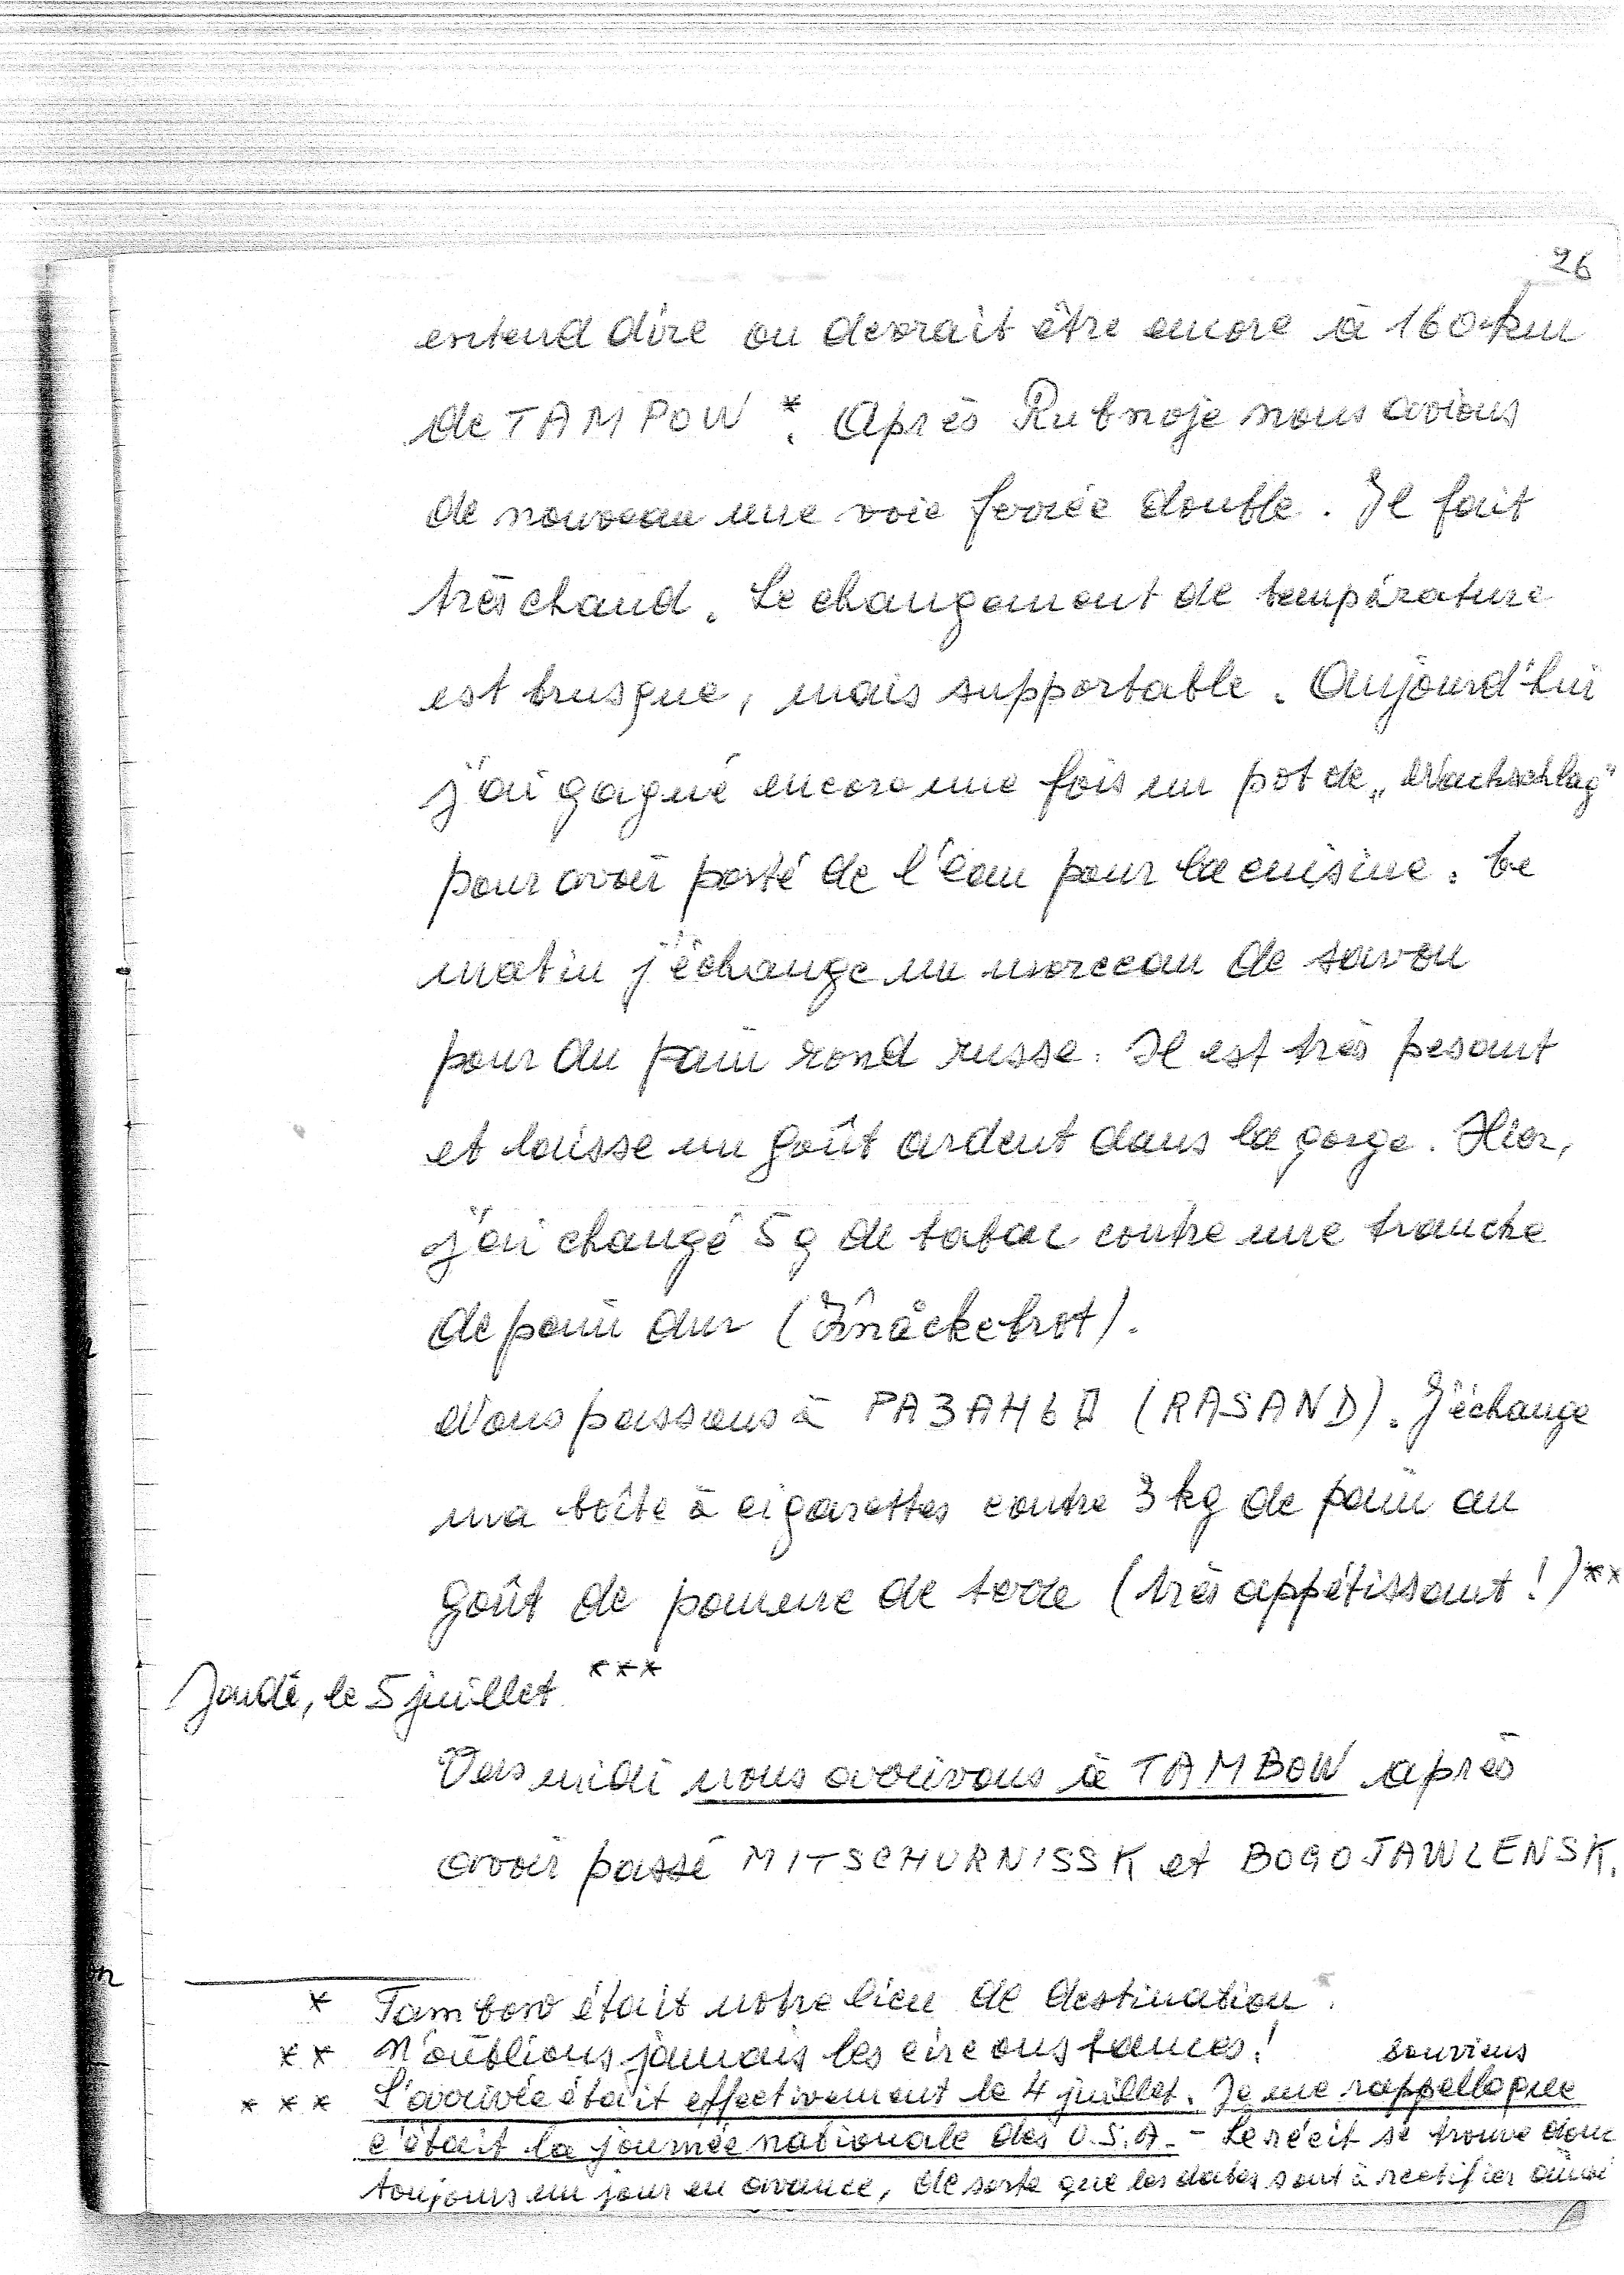 26
entend dire on devrait être encore à 160 km
de TAMPOW *. Après Rubnoje nous avions
de nouveau une voie ferrée double. Il fait
très chaud. Le changement de température
est brusque, mais supportable. Aujourd'hui
j'ai gagné encore une fois un pot de „Nachschlag"
pour avoir porté de l'eau pour la cuisine. Le
matin j'échange un morceau de savon
pour du pain rond russe. Il est très pesant
et laisse un goût ardent dans la gorge. Hier,
j'ai changé 5 g de tabac contre une tranche
de pain dur (Knäckebrot).
Nous passons à (RASAND). J'échange
ma boîte à cigarettes contre 3 kg de pain au
goût de pomme de terre (très appétissant!)**
Jeudi, le 5 juillet ***
Vers midi nous arrivons à TAMBOW après
avoir passé MITSCHURNISSK et BOGOJAWLENSK.
* Tambow était notre lieu de destination.
** N'oublions jamais les circonstances!
souviens
*** L'arrivée était effectivement le 4 juillet. Je me rappelle que
c'était la journée nationale des U.S.A. - Le récit se trouve donc
toujours un jour en avance, de sorte que les dates sont à rectifier ainsi